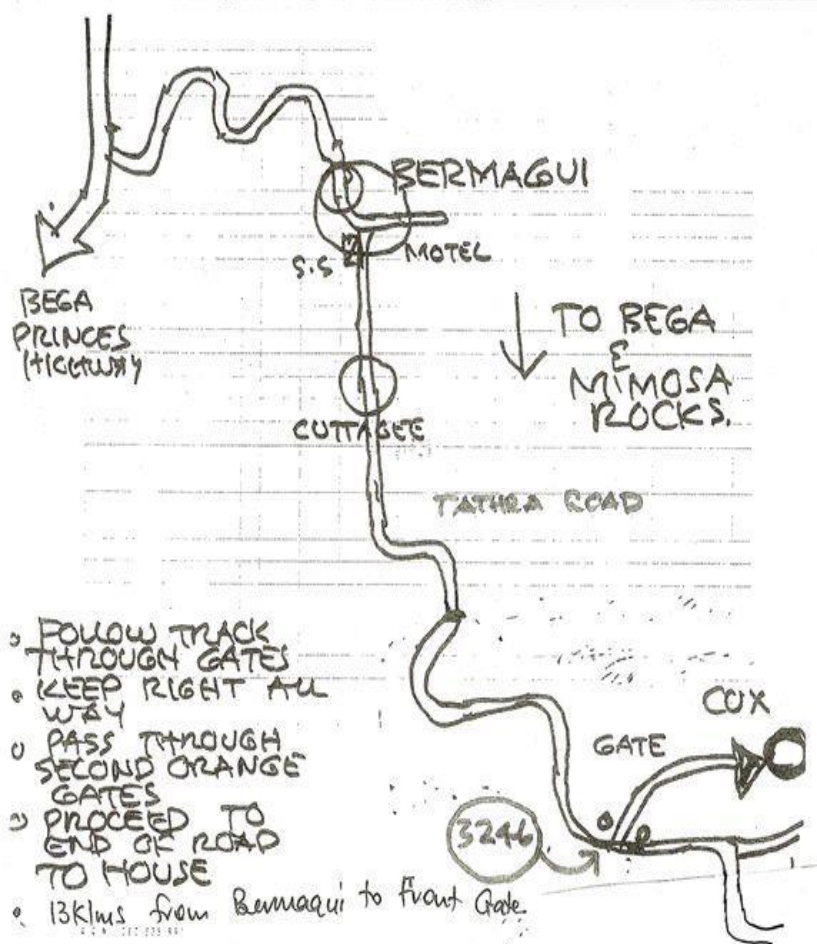 BERMAGUI
S.S
MOTEL
BEGA
PRINCES
HIGHWAY
TO BEGA
&
MIMOSA
ROCKS.
CUTTAGEE
TATHRA ROAD
• FOLLOW TRACK
THROUGH GATES
• KEEP RIGHT ALL
WAY
• PASS THROUGH
SECOND ORANGE
GATES
• PROCEED TO
END OF ROAD
TO HOUSE
• 13klms from Bermagui to Front Gate
COX
GATE
3246